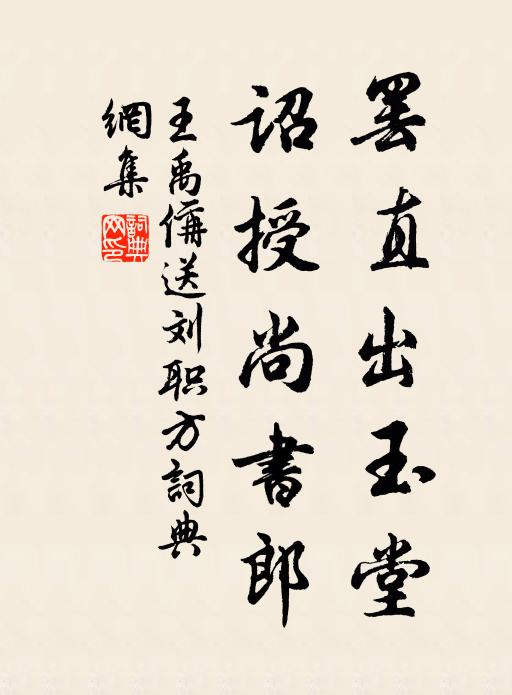 罢直出玉堂
诏授尚書郎
王禹偁送刘职方詞典
網集
詞典
网印